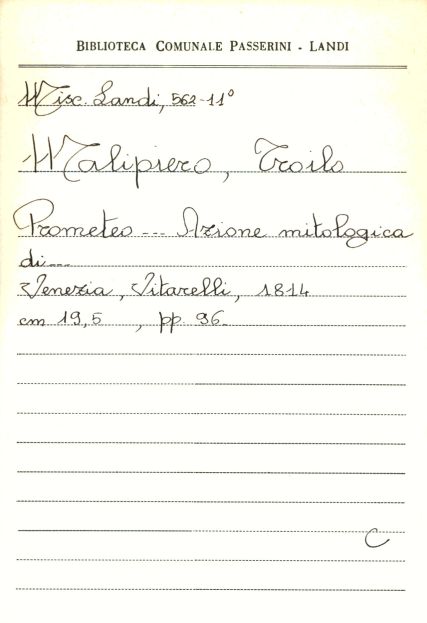 BIBLIOTECA COMUNALE PASSERINI - LANDI
Misc. Landi, 562-11°
Malipiero, Troilo
Prometeo --- Azione mitologica
di---
Venezia, Vitarelli, 1814
cm 19,5 , pp. 96.
C